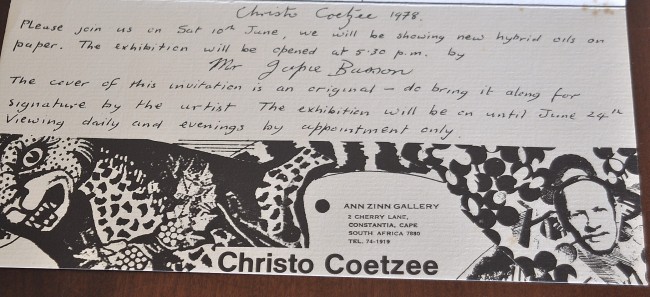 Christo Coetzee 1978.
Please join us on Sat 10th June, we will be showing new hybrid oils on
paper. The exhibition will be opened at 5·30 p.m. by
Mr Japie Basson
The cover of this invitation is an original – do bring it along for
signature by the artist The exhibition will be on until June 24th
Viewing daily and evenings by appointment only.
ANN ZINN GALLERY
2 CHERRY LANE,
CONSTANTIA, CAPE
SOUTH AFRICA 7800
TEL. 74-1919
Christo Coetzee